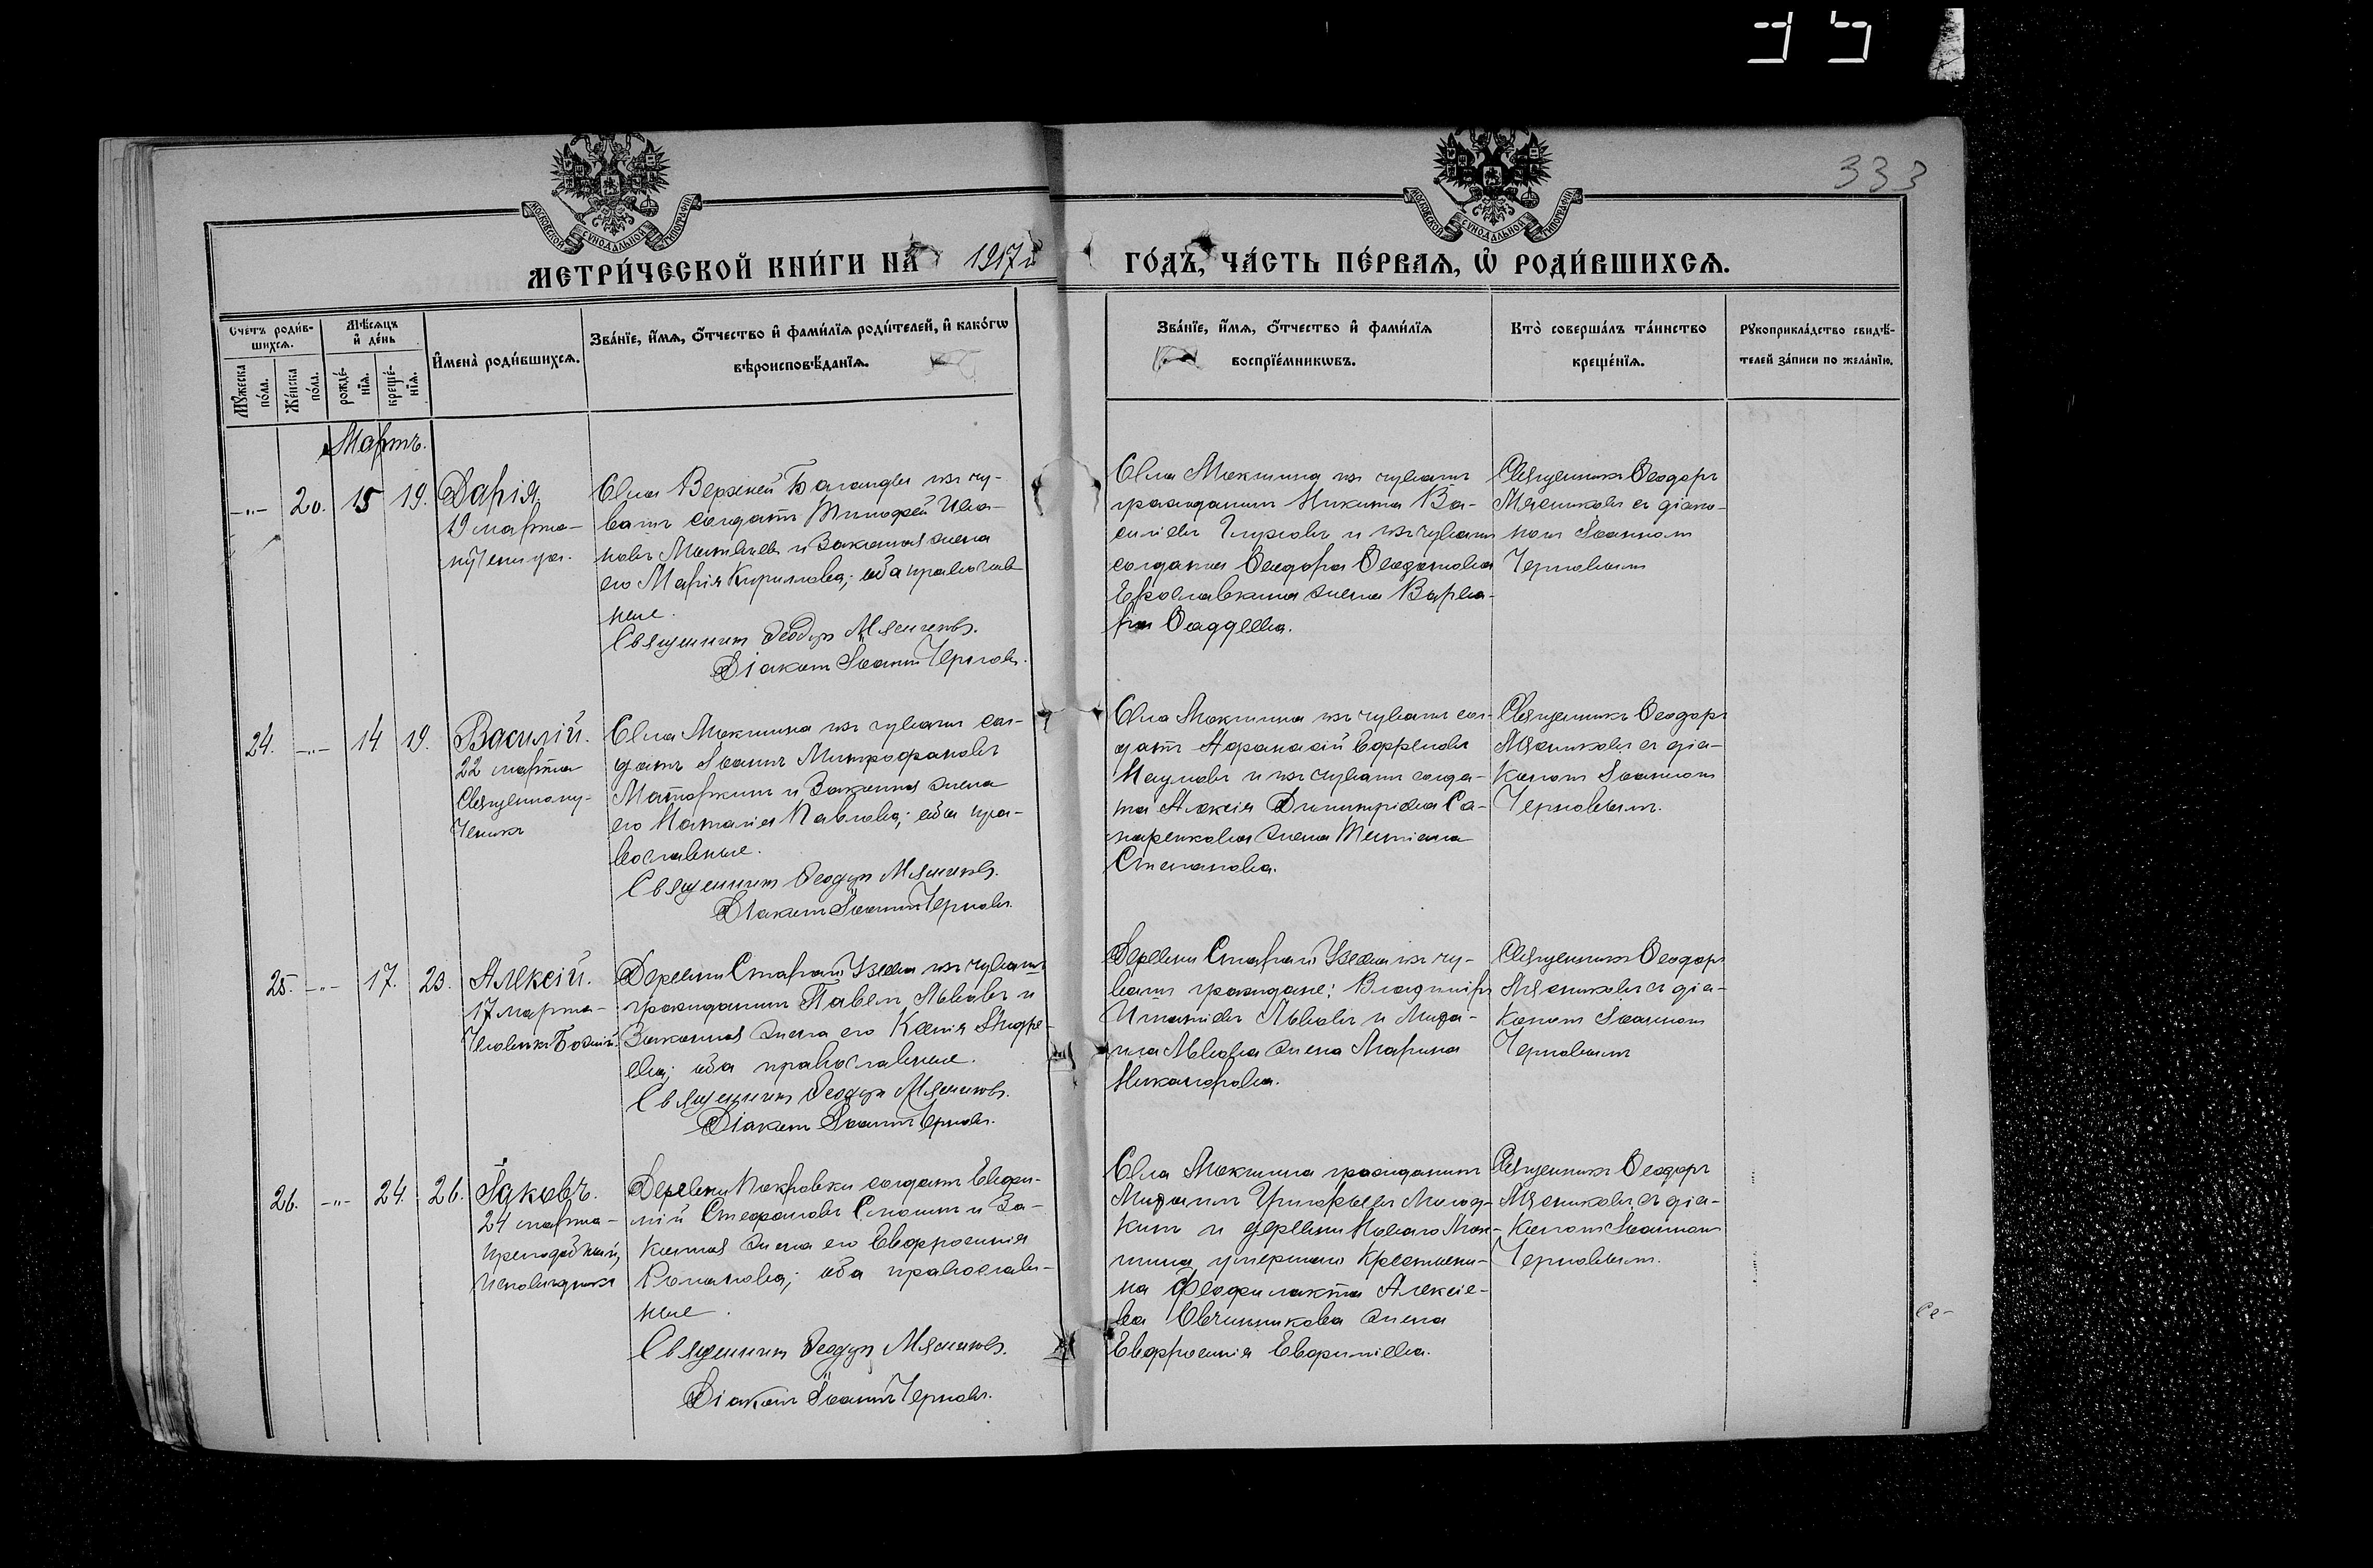 333
МОСКОВСКОЙ СУНОДАЛЬНОЙ ТИПОГРАФІИ
МОСКОВСКОЙ СУНОДАЛЬНОЙ ТИПОГРАФІИ
МЕТРИ́ЧЕСКОЙ КНИ́ГИ НА 1917й ГО́ДЪ, ЧА́СТЬ ПЕ́РВАѦ, Ѡ РОДИ́ВШИХСѦ.
Сче́тъ роди́в-
шихсѧ.
Мꙋжеска по́ла.
Же́нска по́ла.
Мѣ́сѧцъ и҆ де́нь
рожде́-
нїѧ.
креще́-
нїѧ.
И҆мена̀ роди́вшихсѧ.
Зва́нїе, и҆́мѧ, ѻ҆́тчество и҆ фами́лїѧ роди́телей, и҆ како́гѡ
вѣроисповѣ́данїѧ.
Зва́нїе, и҆́мѧ, ѻ҆́тчество и҆ фами́лїѧ
воспрїе́мникѡвъ.
Кто̀ соверша́лъ та́инство
креще́нїѧ.
Рꙋкоприкла́дство свидѣ́-
телей за́писи по жела́нїю.
Мартъ.
-„- 20. 15 19.
Дарія,
19 марта-
мученица.
Села Верхней Баланды изъ чу-
вашъ солдатъ Тимофей Ива-
новъ Матвѣевъ и законная жена
его Марія Кирилова; оба православ
ные.
Священникъ Ѳеодоръ Мясниковъ.
Діаконъ Іоаннъ Черновъ.
Села Мокшина изъ чувашъ
гражданинъ Никита Ва-
силіевъ и изъ чувашъ
солдата Ѳеодора
жена Варва-
ра Ѳаддеева.
Священникъ Ѳеодоръ
Мясниковъ съ діако-
номъ Іоанномъ
Черновымъ
24. -„- 14 19.
Василій.
22 марта
Священному-
ченикъ
Села Мокшина изъ чувашъ сол-
датъ Іоаннъ Митрофановъ
Маторкинъ и законная жена
его Наталія Павлова; оба пра-
вославные.
Священникъ Ѳеодоръ Мясниковъ.
Діаконъ Іоаннъ Черновъ.
Села Мокшина изъ чувашъ сол-
датъ Афанасій Ефремовъ
Наумовъ и изъ чувашъ солда-
та Алексія Димитріева Са-
жена Татіана
Степанова.
Священникъ Ѳеодоръ
Мясниковъ съ діа-
кономъ Іоанномъ
Черновымъ.
25. -„- 17. 23.
Алексій.
17 марта-
Человѣкъ Божій.
Деревни Старой Узеева изъ чувашъ
гражданинъ Павелъ Львовъ и
законная жена его Ксенія Андре-
ева; оба православные.
Священникъ Ѳеодоръ Мясниковъ.
Діаконъ Іоаннъ Черновъ.
Деревни Старой Узеева изъ чу-
вашъ граждане: Владиміръ
Игнатіевъ Львовъ и Миха-
ила Львова жена Марина
Никанорова.
Священникъ Ѳеодоръ
Мясниковъ съ діа-
кономъ Іоанномъ
Черновымъ
26. -„- 24. 26.
Іаковъ.
24 марта-
преподобный,
исповѣдникъ
Деревни Покровки солдатъ Евфи-
мій Стефановъ и за-
конная жена его Евфросинія
Романова; оба православ-
ные.
Священникъ Ѳеодоръ Мясниковъ.
Діаконъ Іоаннъ Черновъ.
Села Мокшина гражданинъ
Михаилъ Григорьевъ Молод-
кинъ и деревни Новаго Мок-
шина умершаго крестьяни-
на Феофилакта Алексіе-
ва Овчинникова жена
Евфросинія Евфиміева.
Священникъ Ѳеодоръ
Мясниковъ съ діа-
кономъ Іоанномъ
Черновымъ.